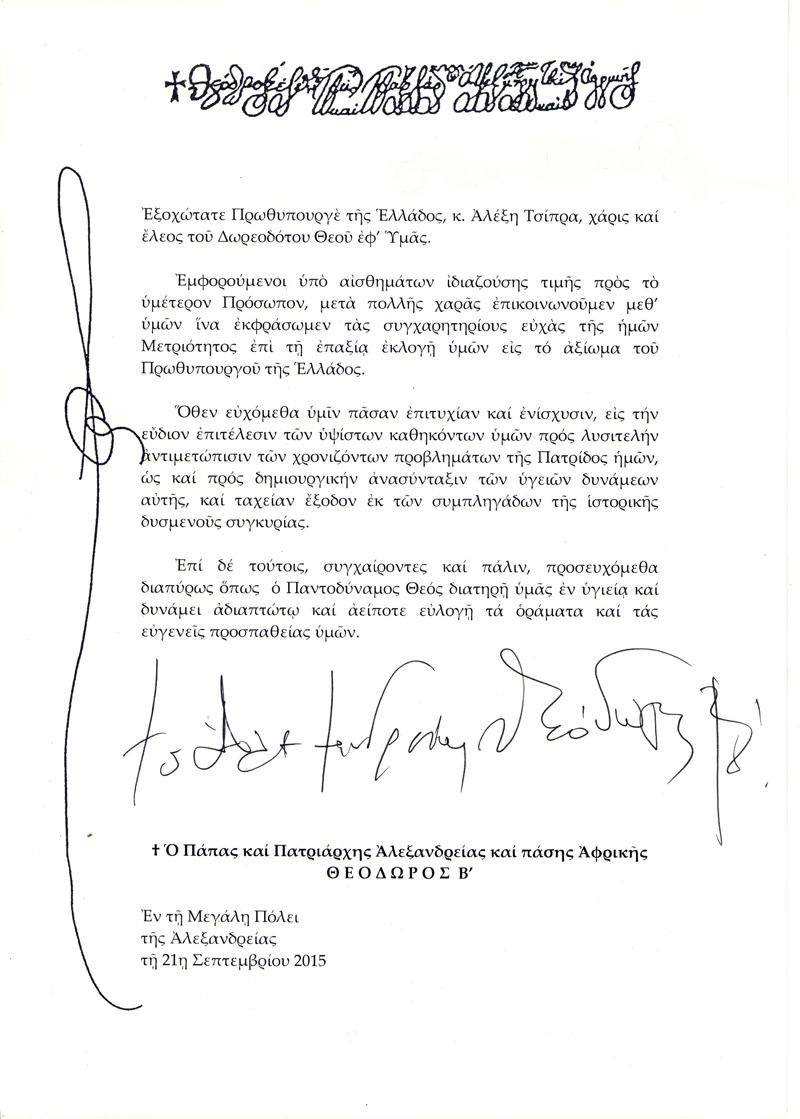 Ἐξοχώτατε Πρωθυπουργὲ τῆς Ἑλλάδος, κ. Ἀλέξη Τσίπρα, χάρις καί
ἔλεος τοῦ Δωρεοδότου Θεοῦ ἐφ’ Ὑμᾶς.
Ἐμφορούμενοι ὑπό αἰσθημάτων ἰδιαζούσης τιμῆς πρὸς τὸ
ὑμέτερον Πρόσωπον, μετὰ πολλῆς χαρᾶς ἐπικοινωνοῦμεν μεθ’
ὑμῶν ἵνα ἐκφράσωμεν τὰς συγχαρητηρίους εὐχὰς τῆς ἡμῶν
Μετριότητος ἐπὶ τῇ ἐπαξίᾳ ἐκλογῇ ὑμῶν εἰς τό ἀξίωμα τοῦ
Πρωθυπουργοῦ τῆς Ἑλλάδος.
Ὅθεν εὐχόμεθα ὑμῖν πᾶσαν ἐπιτυχίαν καί ἐνίσχυσιν, εἰς τήν
εὔδιον ἐπιτέλεσιν τῶν ὑψίστων καθηκόντων ὑμῶν πρός λυσιτελῆν
ἀντιμετώπισιν τῶν χρονιζόντων προβλημάτων τῆς Πατρίδος ἡμῶν,
ὡς καί πρός δημιουργικήν ἀνασύνταξιν τῶν ὑγειῶν δυνάμεων
αὐτῆς, καί ταχείαν ἔξοδον ἐκ τῶν συμπληγάδων τῆς ἱστορικῆς
δυσμενοῦς συγκυρίας.
Ἐπί δέ τούτοις, συγχαίροντες καί πάλιν, προσευχόμεθα
διαπύρως ὅπως ὁ Παντοδύναμος Θεός διατηρῇ ὑμᾶς ἐν ὑγιείᾳ καί
δυνάμει ἀδιαπτώτῳ καί ἀείποτε εὐλογῇ τά ὁράματα καί τάς
εὐγενεῖς προσπαθείας ὑμῶν.
† Ὁ Πάπας καί Πατριάρχης Ἀλεξανδρείας καί πάσης Ἀφρικῆς
ΘΕΟΔΩΡΟΣ Β’
Ἐν τῇ Μεγάλῃ Πόλει
τῆς Ἀλεξανδρείας
τῇ 21ῃ Σεπτεμβρίου 2015